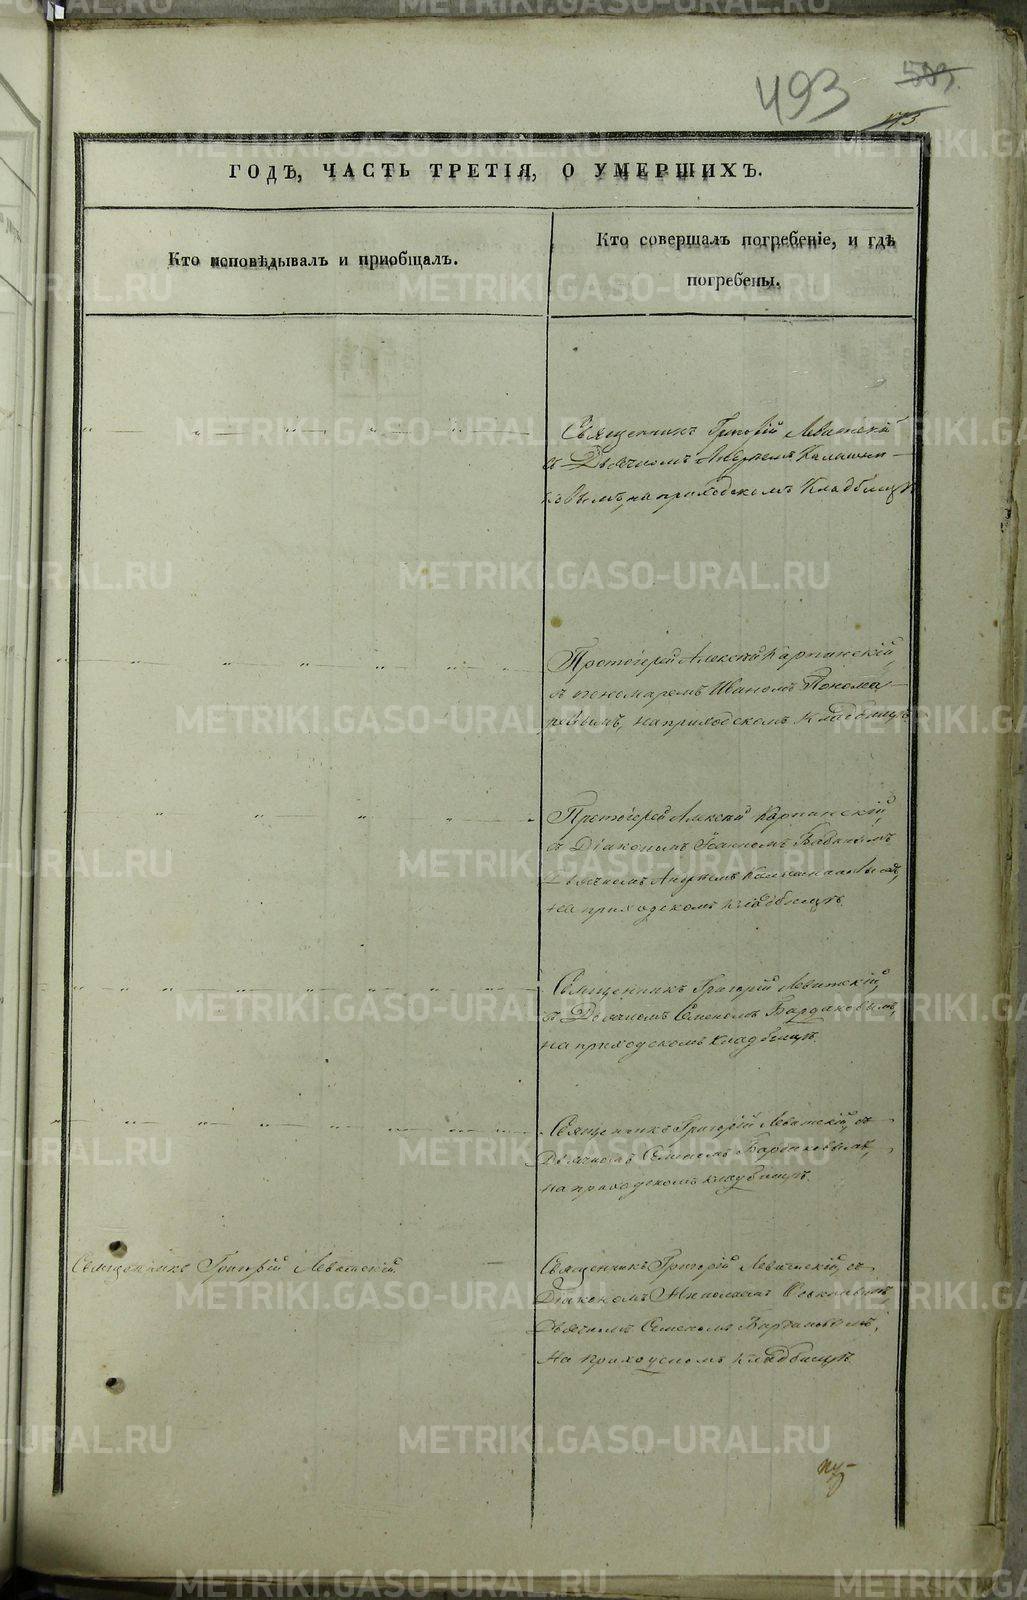 493
503.
ГОДЪ, ЧАСТЬ ТРЕТІЯ, О УМЕРШИХЪ.
Кто исповѣдывалъ и пріобщалъ.
Кто совершалъ погребеніе, и гдѣ
погребены.
Священникъ Григорій Левитскій
съ Дьячкомъ Андреемъ Калашни-
ковымъ, на приходскомъ Кладбищѣ
Протоіерей Алексѣй Карпинскій,
съ пономаремъ Иваномъ Понома-
ревымъ, на приходскомъ Кладбищѣ
Протоіерей Алексѣй Карпинскій,
съ Діакономъ Іоанномъ
Дьячкомъ Андреемъ
на приходскомъ кладбищѣ.
Священникъ Григорій Левитскій,
съ Дьячкомъ Семеномъ Бардаковымъ,
на приходскомъ кладбищѣ.
Священникъ Григорій Левитскій, съ
Дьячкомъ Семеномъ
на приходскомъ кладбищѣ.
Священникъ Григорій Левитскій.
Священникъ Григорій Левитскій, съ
Діакономъ Николаемъ
Дьячкомъ Семеномъ Бардаковымъ,
на приходскомъ кладбищѣ.
METRIKI.GASO-URAL.RU